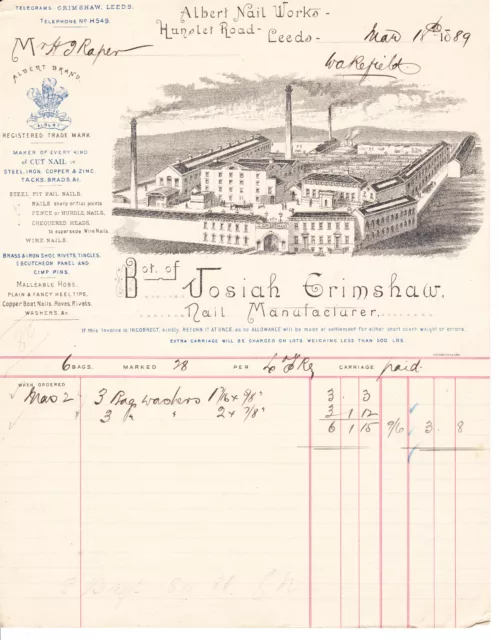 TELEGRAMS. GRIMSHAW, LEEDS.
TELEPHONE No H549.
Albert Nail Works-
Hunslet Road-
Leeds-
Mar 18th 1889
Mr H J Raper
Wakefield
ALBERT BRAND
ALBERT
REGISTERED TRADE MARK
MAKER OF EVERY KIND
of CUT NAIL in
STEEL, IRON, COPPER & ZINC,
TACKS, BRADS, &c.
STEEL PIT RAIL NAILS.
NAILS sharp or flat points
FENCE or HURDLE NAILS,
CHEQUERED HEADS,
to supersede Wire Nails.
WIRE NAILS.
BRASS & IRON SHOE RIVETS, TINGLES,
ESCUTCHEON PANEL AND
GIMP PINS.
MALLEABLE HOBS.
PLAIN & FANCY HEEL TIPS,
Copper Boat Nails, Roves, Rivets,
WASHERS, &c.
Bot. of
Josiah Grimshaw,
Nail Manufacturer,
If this Invoice is INCORRECT, kindly RETURN IT AT ONCE, as no ALLOWANCE will be made at settlement for either short count weight or errors.
EXTRA CARRIAGE WILL BE CHARGED ON LOTS WEIGHING LESS THAN 100 LBS.
6 BAGS. MARKED 28 PER CARRIAGE paid.
WHEN ORDERED
Mar 2 3 Bag washers 1 7/16 x 9/8" 3 . 3
" 3 " " 2 x 7/8" 3 1 12
6 1 15 9/6 3 . 8